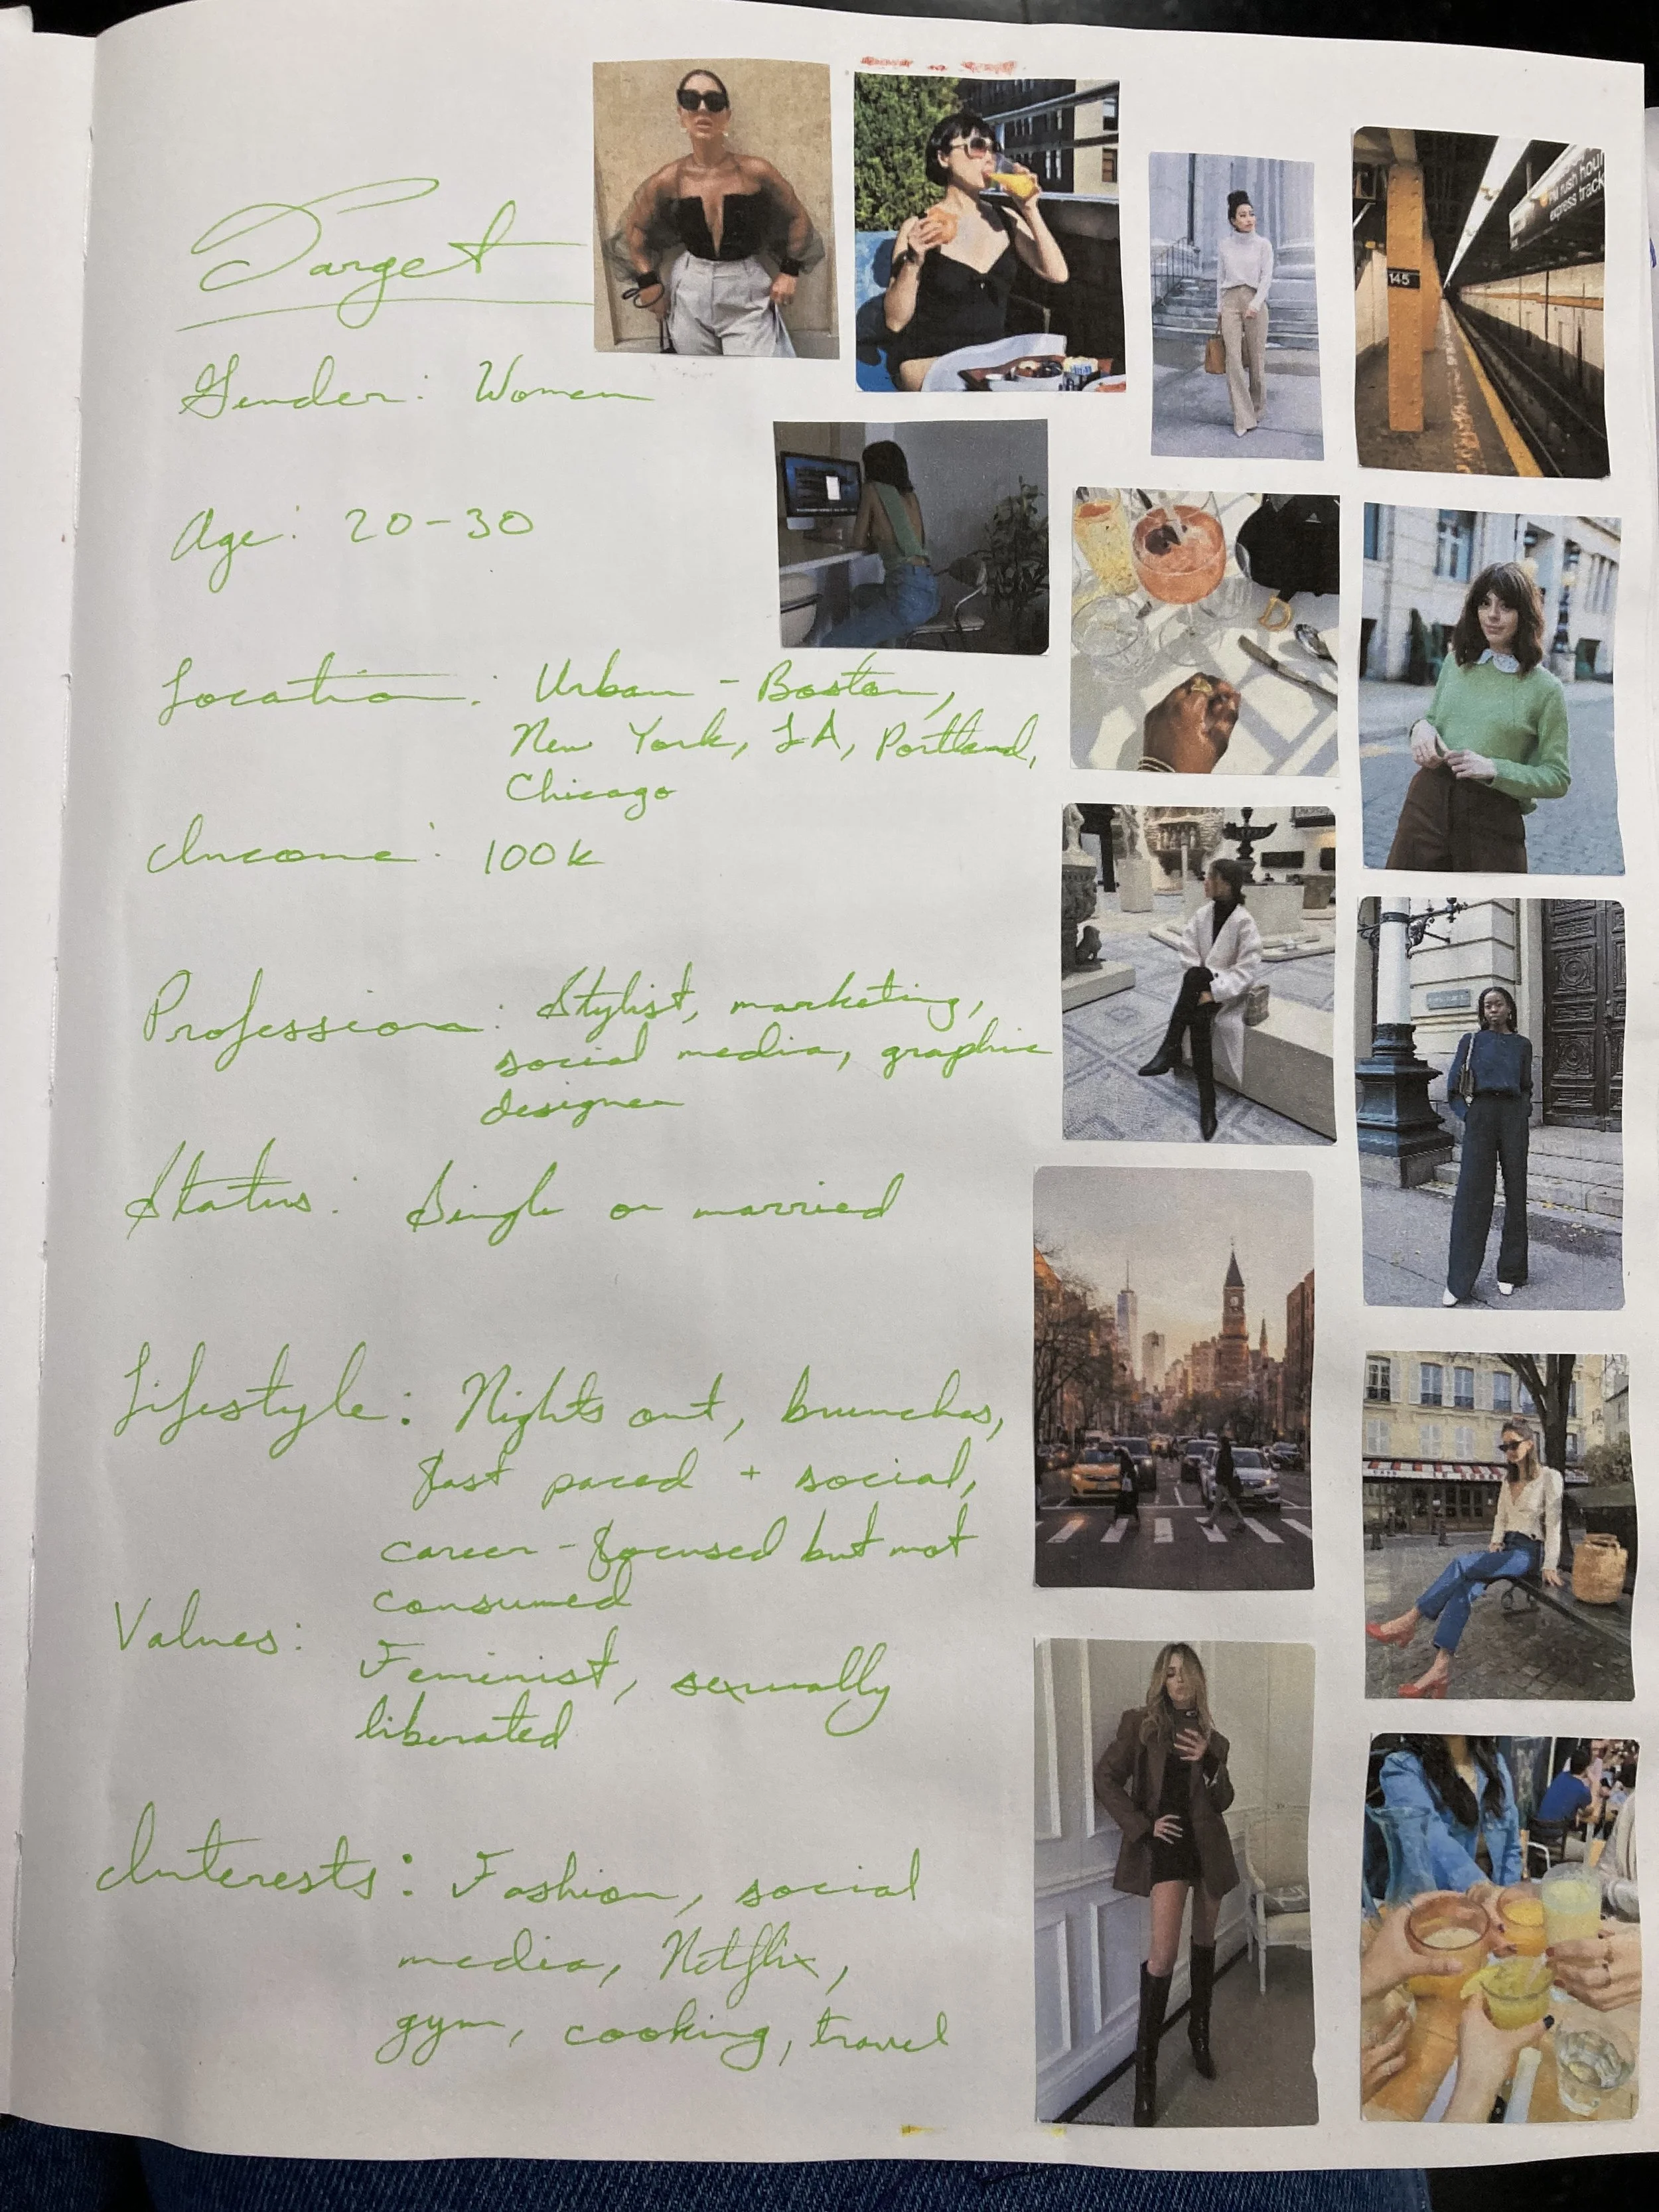 Target
Gender: Women
Age: 20-30
Location: Urban - Boston,
New York, LA, Portland,
Chicago
Income: 100k
Profession: Stylist, marketing,
social media, graphic
designer
Status: Single or married
Lifestyle: Nights out, brunches,
fast paced + social,
career-focused but not
consumed
Values:
Feminist, sexually
liberated
Interests: Fashion, social
media, Netflix,
gym, cooking, travel
rush hour
express track
145
D